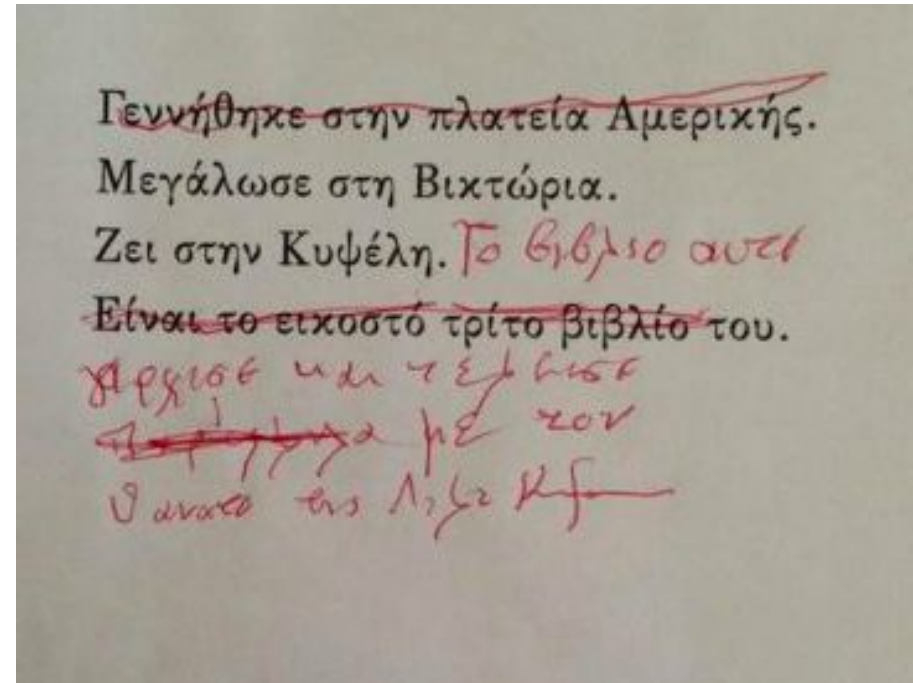 Γεννήθηκε στην πλατεία Αμερικής.
Μεγάλωσε στη Βικτώρια.
Ζει στην Κυψέλη. Το βιβλιο αυτο
Είναι το εικοστό τρίτο βιβλίο του.
αρχισε και τελειωσε
με τον
θανατο της Λιζε